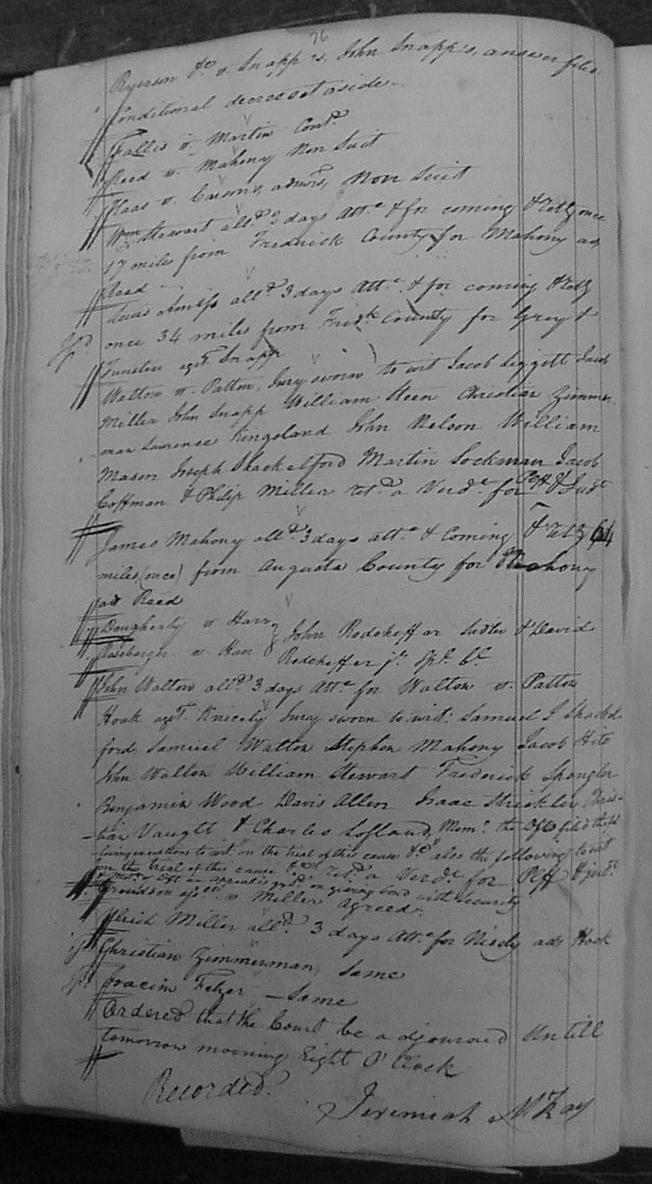 76
Ryerson &c v. Snapp &c, John Snapp's, answer filed
Conditional decree set aside
Fallis v. Martin Cont.d
Reed v. Mahony Non Suit
Haas v. Carson's admr's, Non Suit
Wm Stewart all.d 3 days Att.e & for coming & retg once
17 miles from Frederick County for Mahony ads
Reed
all.d 3 days att.e & for coming & retg
once 34 miles from Fred.k County for &
Funsten ag.t Snapp
Walton v. Patton, Jury sworn to wit Jacob Liggett Jacob
Miller John Snapp William Steen Christian Zimmer-
man Lawrence Kingsland John Nelson William
Mason Joseph Shackelford Martin Lockman Jacob
Coffman & Philip Miller ret.d a Verd.t for Plff & Jud.t
James Mahony all.d 3 days att.e & Coming & retg 64
miles (once) from Augusta County for Mahony
ads Reed
Dougherty v Harr } John Rodeheffer & David
v Harr } Rodeheffer jr. Sp.l B.l
John Walton all.d 3 days Att.e for Walton v. Patton
Hoak ag.t Knicely Jury sworn to wit: Samuel J Shackel-
ford, Samuel Walton Stephen Mahony Jacob Hite
John Walton William Stewart Frederick Spengler
Benjamin Wood Davis Allen Isaac Strickler Chris-
tian Vaught & Charles Lofland, Mem.o the Deft filed the fol-
lowing exceptions to wit "on the trial of this cause &c" also the following to wit
"on the trial of this cause &c" ret.d a Verd.t for Plff & jud.t
an appeal on giving bond with security
v Miller agreed
Ulrich Miller all.d 3 days Att.e for Nisely ads Hoak
Christian Zimmerman, Same
Joacim Fetzer — Same
Ordered that the Court be adjourned Untill
tomorrow morning Eight O'Clock
Recorded.
Jeremiah McKay